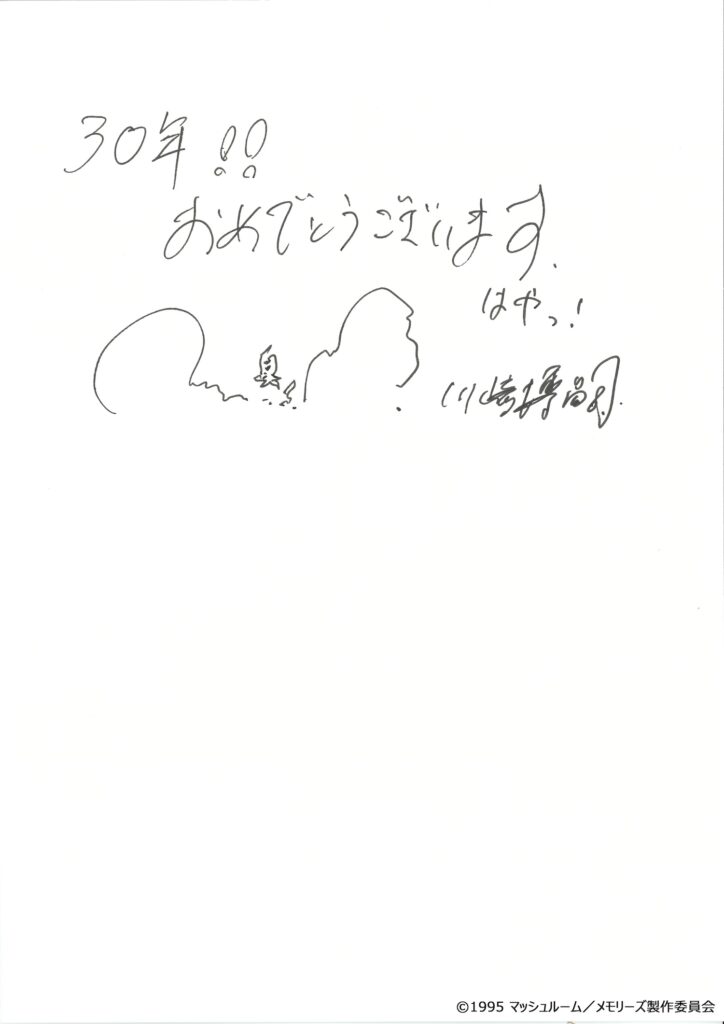 30年!!
おめでとうございます.
はやっ!
川崎博嗣.
©1995 マッシュルーム／メモリーズ製作委員会